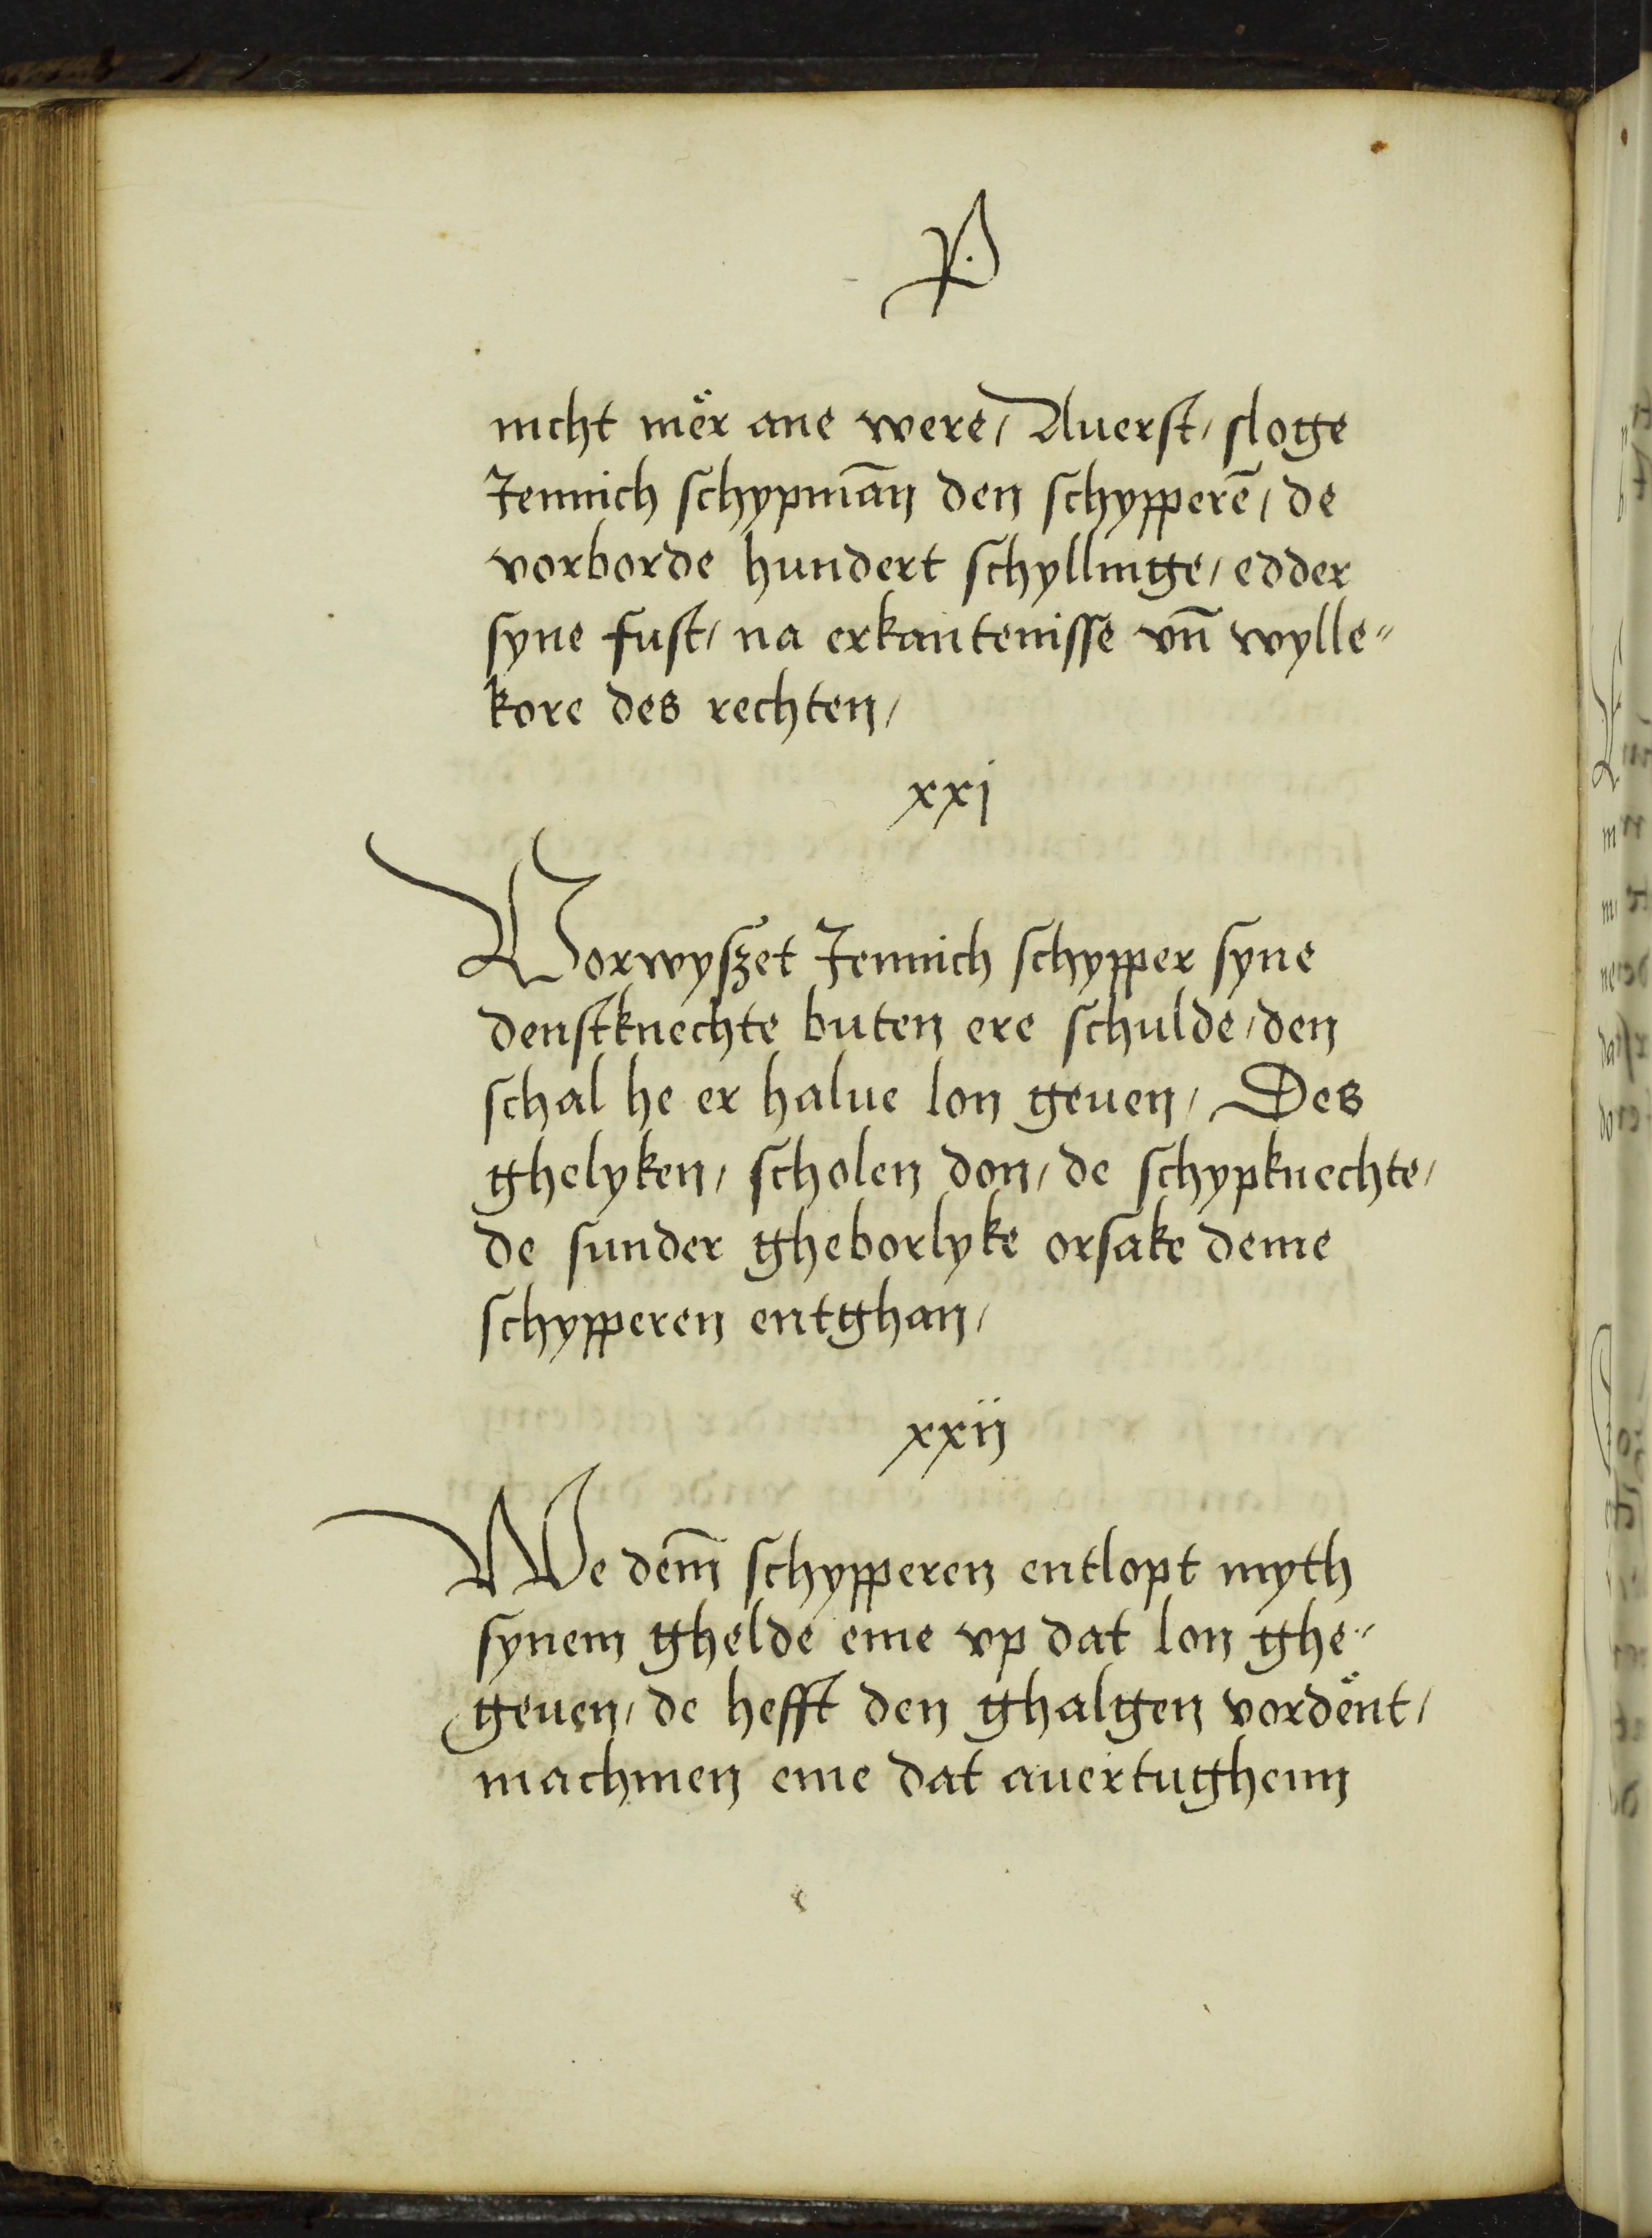 P.
nicht mër ane were/ Auerst/ sloge
Jennich schypmān den schypperē/ de
vorborde hundert schyllinge/ edder
syne fust/ na erkantenisse vn̄ wylle"
kore des rechten/
xxj
Vorwyszet Jennich schypper syne
denstknechte buten ere schulde/ den
schal he er halue lon geuen/ Des
ghelyken/ scholen don/ de schypknechte/
de sunder gheborlyke orsake deme
schypperen entghan/
xxij
We dem̄ schypperen entlopt myth
synem ghelde eme vp dat lon ghe"
geuen/ de hefft den ghalgen vordënt/
machmen eme dat auertughenn